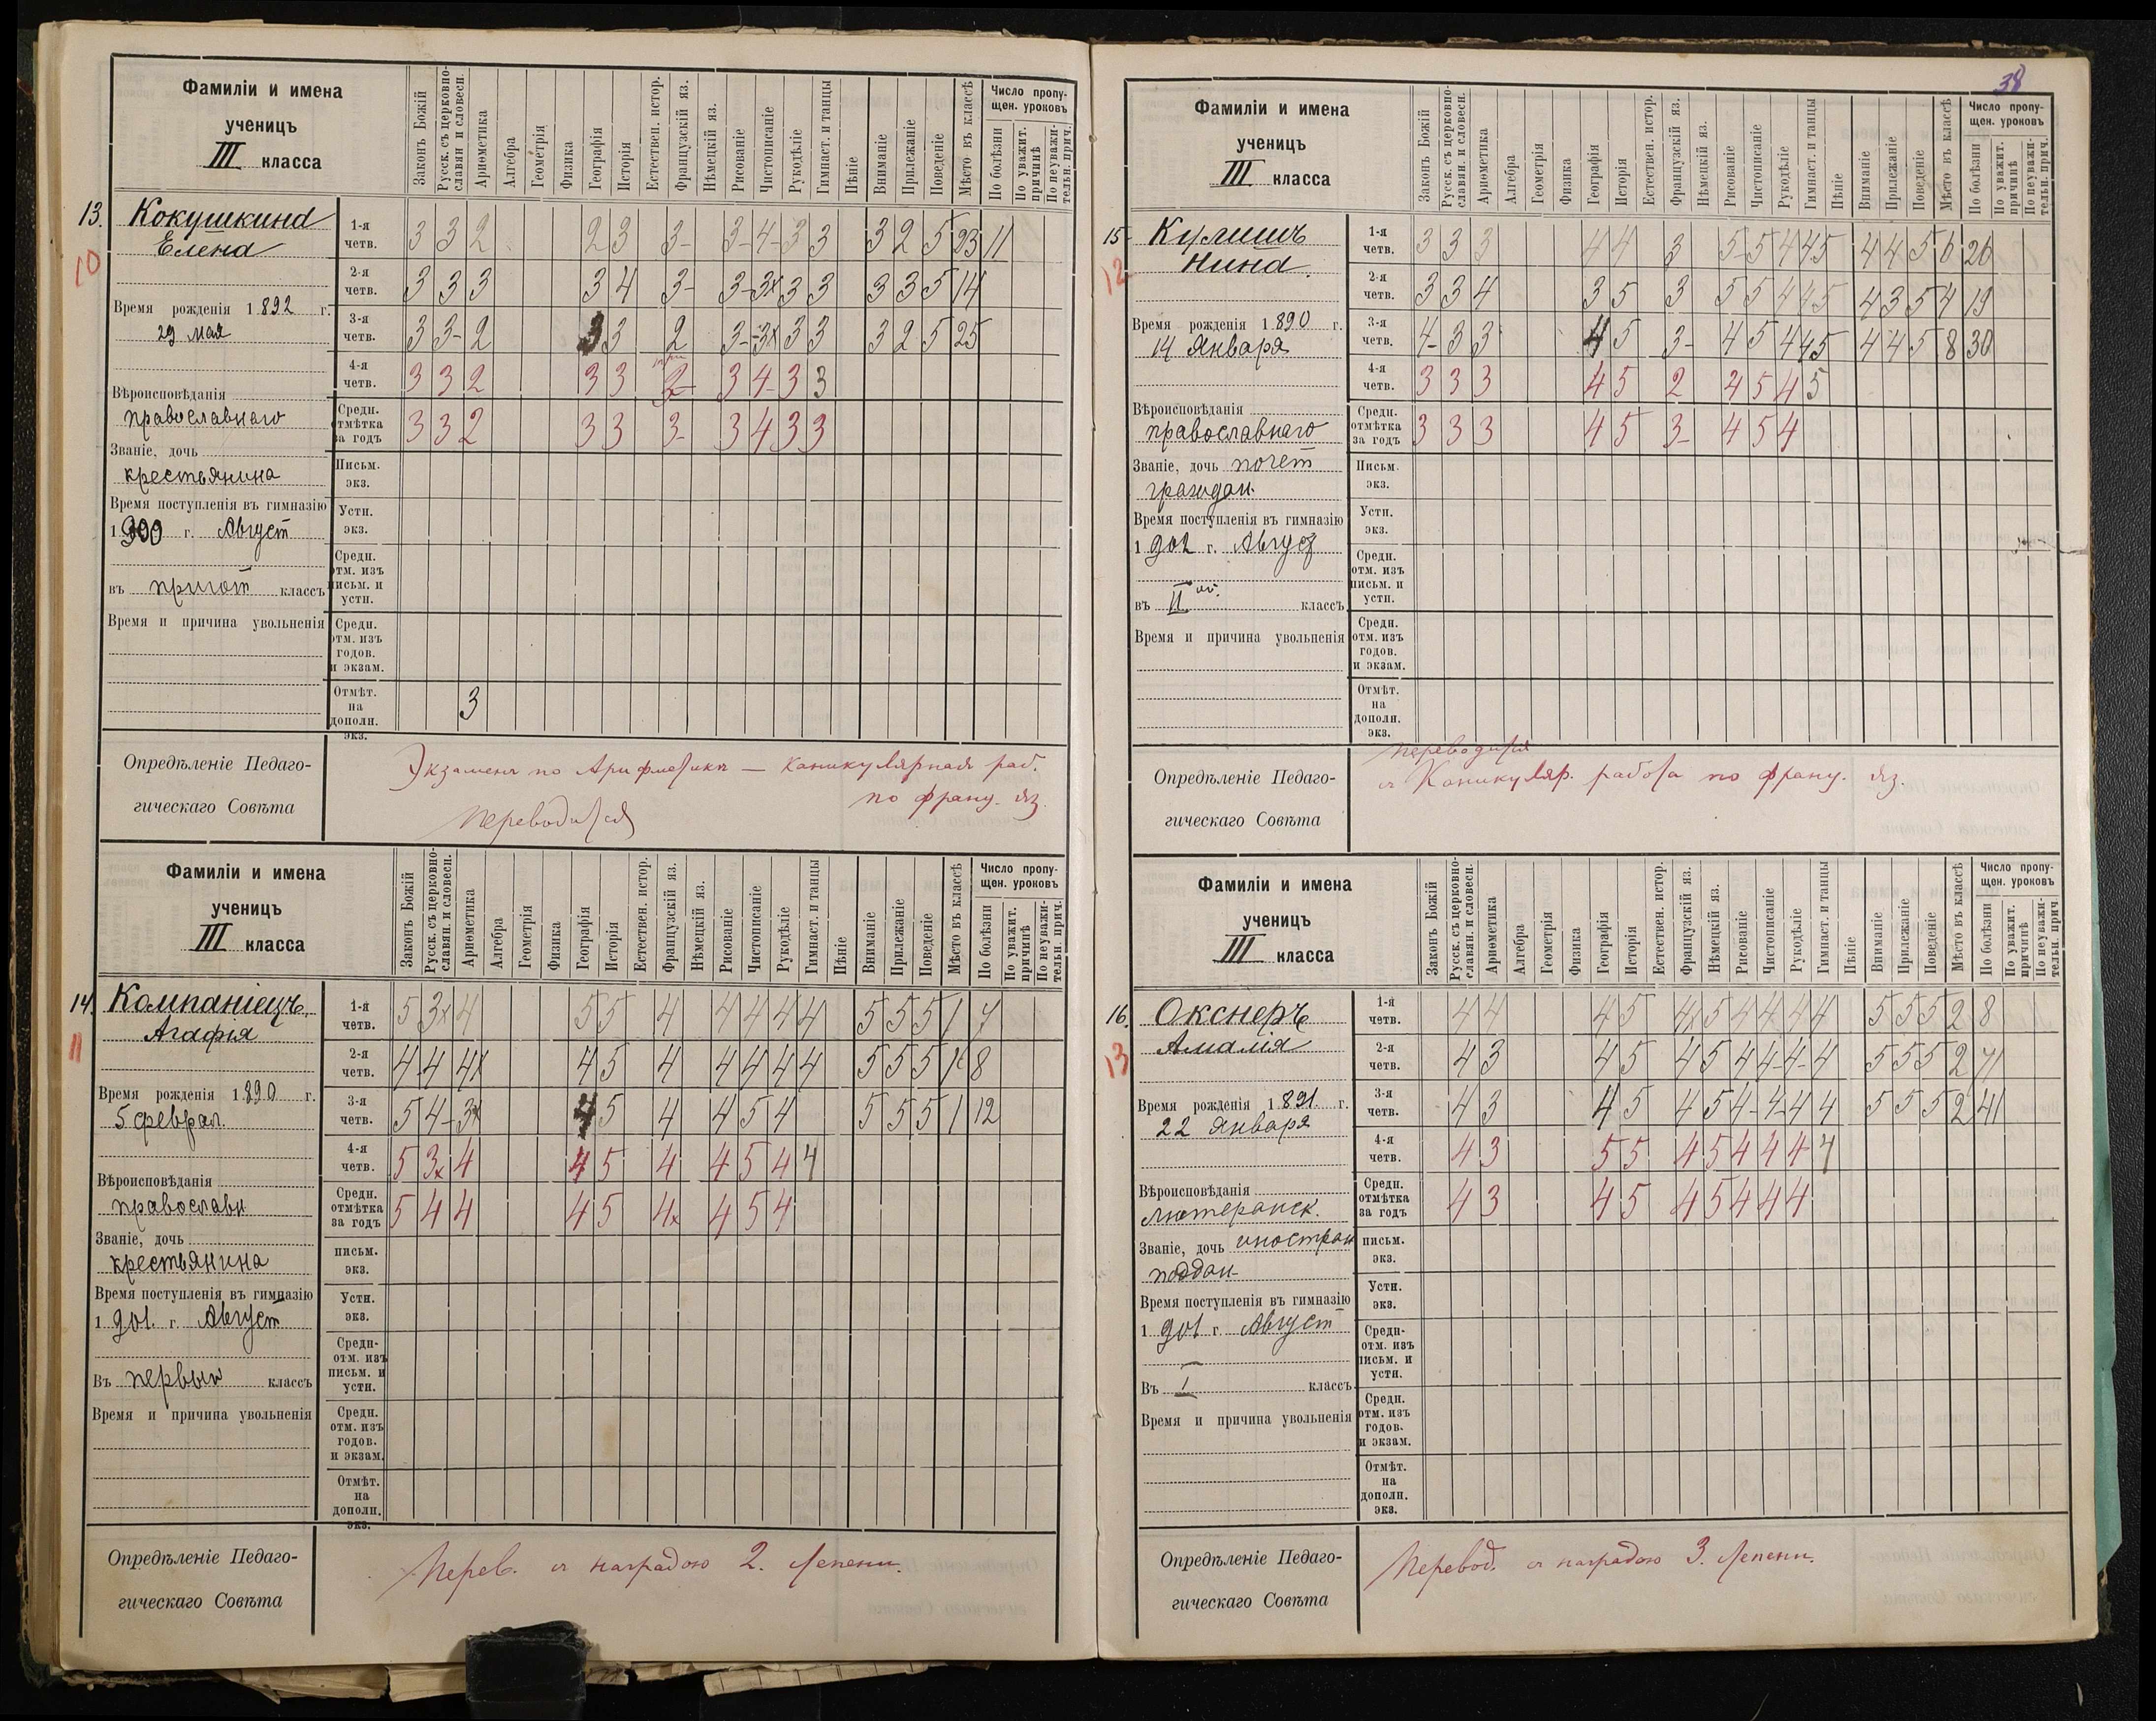 38
Фамиліи и имена
ученицъ
III класса
Законъ Божій
Русск. съ церковно-
славян. и словесн.
Ариѳметика
Алгебра
Геометрія
Физика
Географія
Исторія
Естествен. истор.
Французскій яз.
Нѣмецкій яз.
Рисованіе
Чистописаніе
Рукодѣліе
Гимнаст. и танцы
Пѣніе
Вниманіе
Прилежаніе
Поведеніе
Мѣсто въ классѣ
Число пропу-
щен. уроковъ
По болѣзни
По уважит.
причинѣ
По неуважи-
тельн. прич.
13. Кокушкина
Елена
10
Время рожденія 1892 г.
29 мая
Вѣроисповѣданія
православнаго
Званіе, дочь
крестьянина
Время поступленія въ гимназію
1900 г. Август
въ пригот классъ
Время и причина увольненія
1-я четв. 3 3 2 2 3 3- 3- 4- 3 3 3 2 5 23 11
2-я четв. 3 3 3 3 4 3- 3- 3x 3 3 3 3 5 14
3-я четв. 3 3- 2 3 3 2 3- 3x 3 3 3 2 5 25
4-я четв. 3 3 2 3 3 3 4 3 3
Средн. отмѣтка за годъ 3 3 2 3 3 3- 3 4 3 3
Письм. экз.
Устн. экз.
Средн. отм. изъ письм. и устн.
Средн. отм. изъ годов. и экзам.
Отмѣт. на дополн. экз. 3
Опредѣленіе Педаго-
гическаго Совѣта
Экзаменъ по Арифметикѣ — каникулярная раб.
по франц. яз.
Переводится
Фамиліи и имена
ученицъ
III класса
Законъ Божій
Русск. съ церковно-
славян. и словесн.
Ариѳметика
Алгебра
Геометрія
Физика
Географія
Исторія
Естествен. истор.
Французскій яз.
Нѣмецкій яз.
Рисованіе
Чистописаніе
Рукодѣліе
Гимнаст. и танцы
Пѣніе
Вниманіе
Прилежаніе
Поведеніе
Мѣсто въ классѣ
Число пропу-
щен. уроковъ
По болѣзни
По уважит.
причинѣ
По неуважи-
тельн. прич.
14. Компаніецъ
Агафія
11
Время рожденія 1890 г.
5 феврал.
Вѣроисповѣданія
православн
Званіе, дочь
крестьянина
Время поступленія въ гимназію
1901. г. Август
Въ первый классъ
Время и причина увольненія
1-я четв. 5 3x 4 5 5 4 4 4 4 4 5 5 5 1 7
2-я четв. 4 4 4x 4 5 4 4 4 4 4 5 5 5 8
3-я четв. 5 4- 3x 4 5 4 4 5 4 5 5 5 1 12
4-я четв. 5 3x 4 4 5 4 4 5 4 4
Средн. отмѣтка за годъ 5 4 4 4 5 4x 4 5 4
письм. экз.
Устн. экз.
Средн- отм. изъ письм. и устн.
Средн. отм. изъ годов. и экзам.
Отмѣт. на дополн. экз.
Опредѣленіе Педаго-
гическаго Совѣта
Перев. съ наградою 2. степени.
Фамиліи и имена
ученицъ
III класса
Законъ Божій
Русск. съ церковно-
славян. и словесн.
Ариѳметика
Алгебра
Геометрія
Физика
Географія
Исторія
Естествен. истор.
Французскій яз.
Нѣмецкій яз.
Рисованіе
Чистописаніе
Рукодѣліе
Гимнаст. и танцы
Пѣніе
Вниманіе
Прилежаніе
Поведеніе
Мѣсто въ классѣ
Число пропу-
щен. уроковъ
По болѣзни
По уважит.
причинѣ
По неуважи-
тельн. прич.
15 Кулишъ
Нина.
12
Время рожденія 1890 г.
14 Января
Вѣроисповѣданія
православнаго
Званіе, дочь почет
граждан.
Время поступленія въ гимназію
1902 г. Август
въ II ой. классъ
Время и причина увольненія
1-я четв. 3 3 3 4 4 3 5 5 4 4 5 4 4 5 6 26
2-я четв. 3 3 4 3 5 3 5 5 4 4 5 4 3 5 4 19
3-я четв. 4- 3 3 4 5 3- 4 5 4 4 5 4 4 5 8 30
4-я четв. 3 3 3 4 5 2 4 5 4 5
Средн. отмѣтка за годъ 3 3 3 4 5 3- 4 5 4
Письм. экз.
Устн. экз.
Средн. отм. изъ письм. и устн.
Средн. отм. изъ годов. и экзам.
Отмѣт. на дополн. экз.
Опредѣленіе Педаго-
гическаго Совѣта
переводится
съ Каникуляр. работа по франц. яз.
Фамиліи и имена
ученицъ
III класса
Законъ Божій
Русск. съ церковно-
славян. и словесн.
Ариѳметика
Алгебра
Геометрія
Физика
Географія
Исторія
Естествен. истор.
Французскій яз.
Нѣмецкій яз.
Рисованіе
Чистописаніе
Рукодѣліе
Гимнаст. и танцы
Пѣніе
Вниманіе
Прилежаніе
Поведеніе
Мѣсто въ классѣ
Число пропу-
щен. уроковъ
По болѣзни
По уважит.
причинѣ
По неуважи-
тельн. прич.
16. Окснеръ
Амалія
13
Время рожденія 1891 г.
22 Января
Вѣроисповѣданія
лютеранск.
Званіе, дочь иностран
поддан-
Время поступленія въ гимназію
1901 г Август
Въ I классъ
Время и причина увольненія
1-я четв. 4 4 4 5 4x 5 4 4 4 4 5 5 5 2 8
2-я четв. 4 3 4 5 4 5 4 4- 4- 4 5 5 5 2 71
3-я четв. 4 3 4 5 4 5 4- 4- 4 4 5 5 5 2 41
4-я четв. 4 3 5 5 4 5 4 4 4 4
Средн. отмѣтка за годъ 4 3 4 5 4 5 4 4 4
письм. экз.
Устн. экз.
Средн- отм. изъ письм. и устн.
Средн. отм. изъ годов. и экзам.
Отмѣт. на дополн. экз.
Опредѣленіе Педаго-
гическаго Совѣта
Перевод. съ наградою 3. степени.